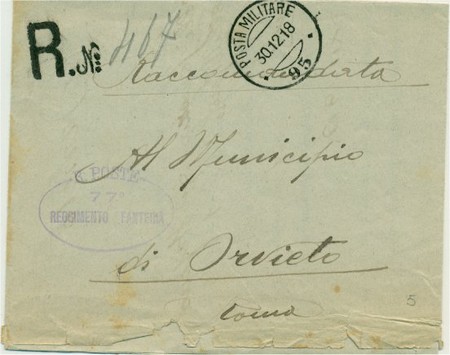 R. N. 467
POSTA MILITARE
30.12.18
95
Raccomandata
Al Municipio
R. POSTE
77º
REGGIMENTO FANTERIA
di Orvieto
5